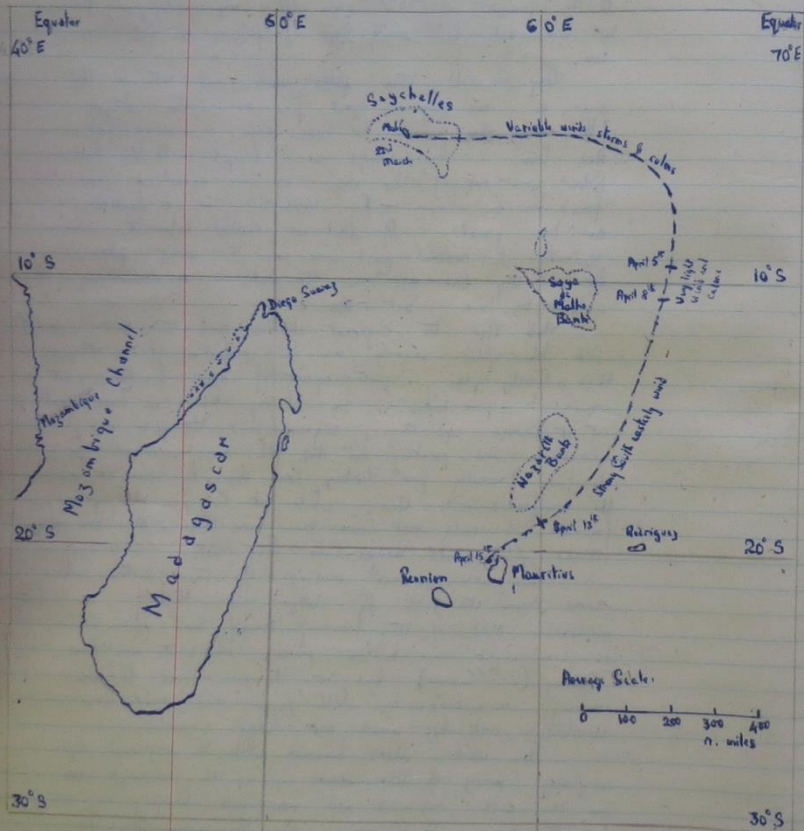 Equator
60°E
60°E
Equator
40°E
70°E
Seychelles
Mahé
22nd
March
Variable winds storms & calms
10°S
10°S
April 5th
April 8th
Very light
winds and
calms
Saya
di
Malha
Bank
Diego Suarez
Mozambique Channel
Mozambique
Madagascar
Nazareth
Bank
Strong South easterly wind
April 13th
20°S
20°S
Rodriguez
April 15th
Mauritius
Reunion
Average Scale.
0 100 200 300 400
n. miles
30°S
30°S